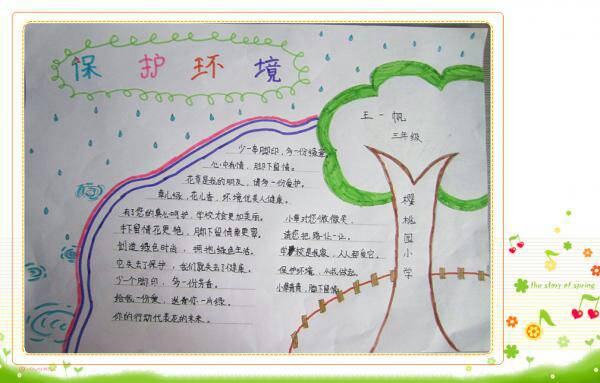 保护环境
王一帆
三年级
少一串脚印，多一份绿意。
心中有情，脚下留情。
花草是我的朋友，请多一份爱护。
鸟儿绿，花儿香，环境优美人健康。
有了您的真心呵护，学校才会更加美丽。
手下留情花更艳，脚下留情草更翠。
创造绿色时尚，拥抱绿色生活。
它失去了保护，我们就失去了健康。
少一个脚印，多一份芳香。
给我一份爱，送看你一片绿。
你的行动代表花的未来。
小草对您微微笑，
请您把路让一让。
学校是我家，人人都爱它。
保护环境，从我做起。
小草青青，脚下留情。
樱桃园小学
the story of spring